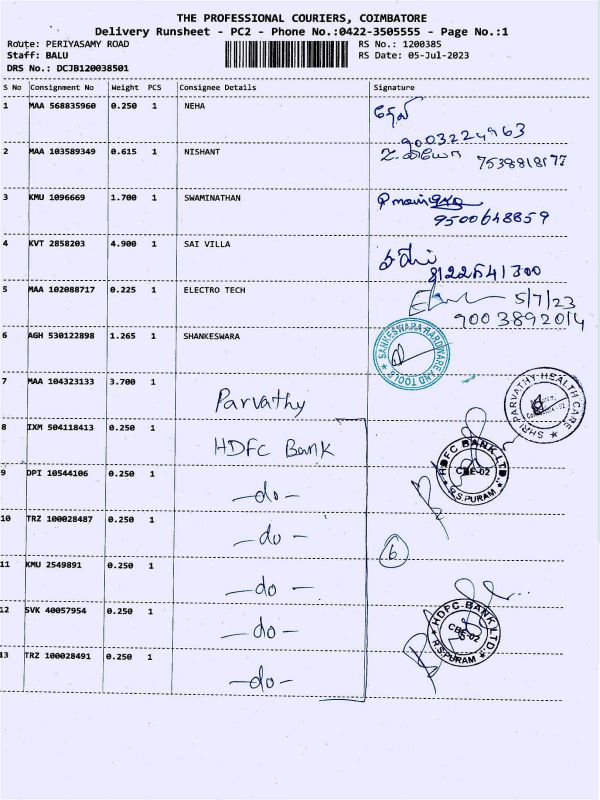 THE PROFESSIONAL COURIERS, COIMBATORE
Delivery Runsheet - PC2 - Phone No.:0422-3505555 - Page No.:1
Route: PERIYASAMY ROAD RS No.: 1200385
Staff: BALU RS Date: 05-Jul-2023
DRS No.: DCJB120038501
S No Consignment No Weight PCS Consignee Details Signature
1 MAA 568835960 0.250 1 NEHA
9003224963
2 MAA 103589349 0.615 1 NISHANT
7538818177
3 KMU 1096669 1.700 1 SWAMINATHAN
9500648859
4 KVT 2858203 4.900 1 SAI VILLA
8122541300
5 MAA 102088717 0.225 1 ELECTRO TECH 5/7/23
9003892014
6 AGH 530122898 1.265 1 SHANKESWARA
SANKESWARA HARDWARE AND TOOLS
7 MAA 104323133 3.700 1 Parvathy
SHRI PARVATHY HEALTH CARE
8 IXM 504118413 0.250 1 HDFC Bank
HDFC BANK LTD.
CBE-02
R.S.PURAM
9 DPI 10544106 0.250 1 -do-
10 TRZ 100028487 0.250 1 -do-
6
11 KMU 2549891 0.250 1 -do-
12 SVK 40057954 0.250 1 -do-
HDFC BANK LTD.
CBE-02
R.S.PURAM
13 TRZ 100028491 0.250 1 -do-